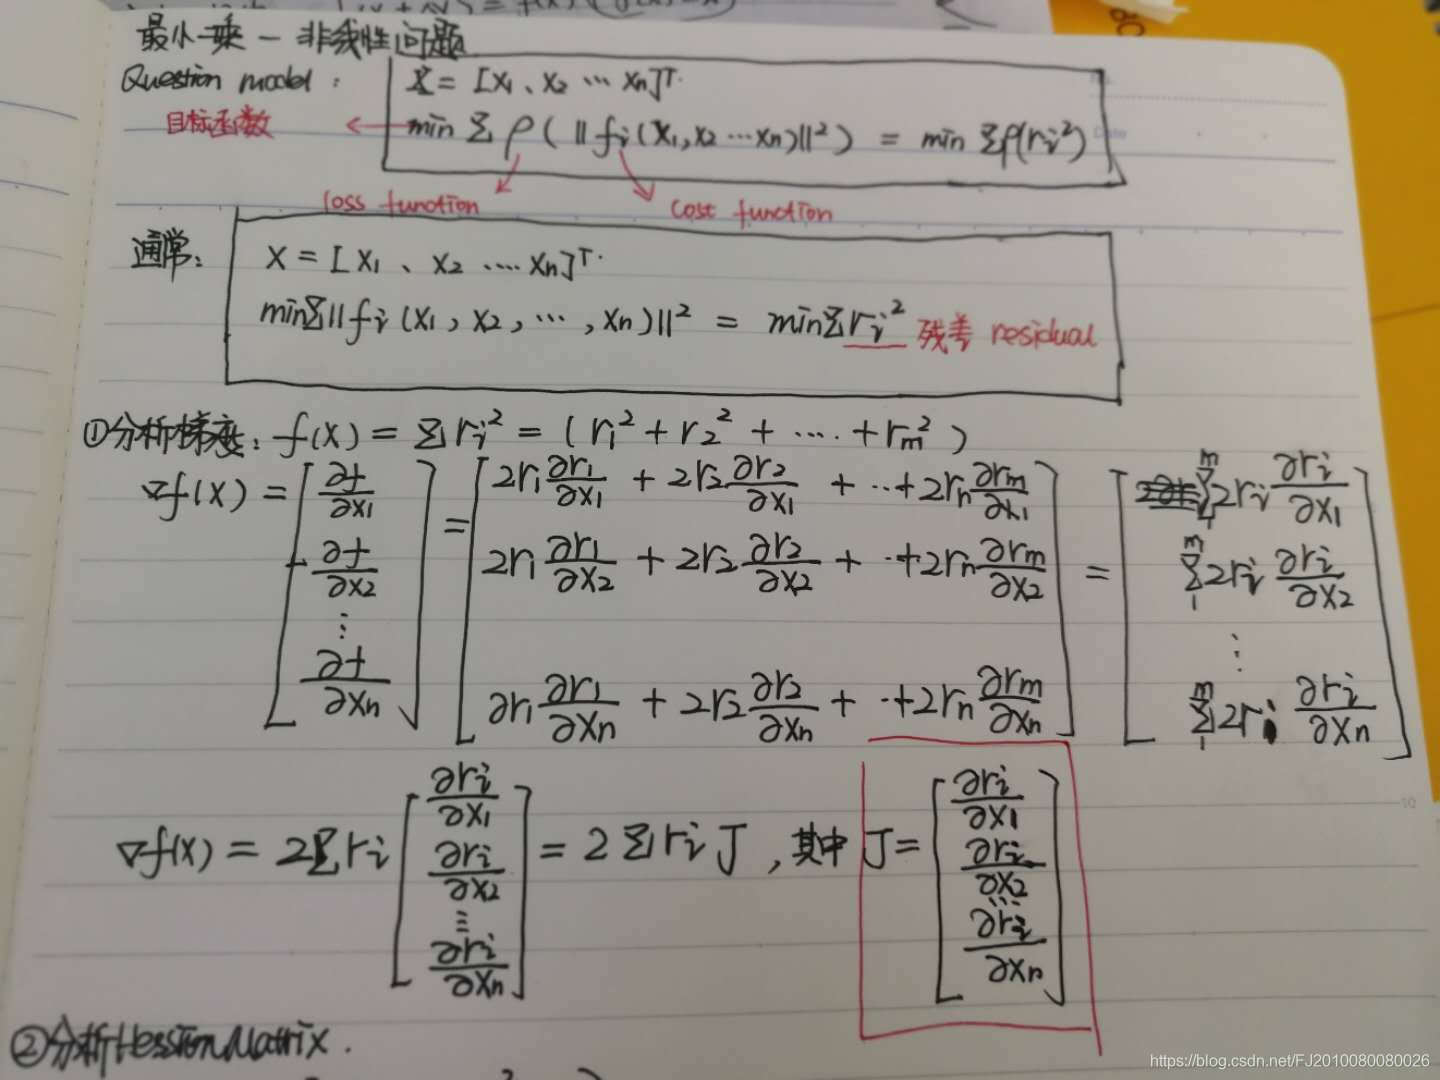 最小二乘 — 非线性问题
Question model: X = [x₁、x₂ … xₙ]ᵀ.
目标函数 ← min Σ ρ(‖fᵢ(x₁,x₂…xₙ)‖²) = min Σρ(rᵢ²)
loss function cost function
通常: X = [x₁、x₂ …. xₙ]ᵀ.
minΣ‖fᵢ(x₁, x₂, …, xₙ)‖² = minΣrᵢ² 残差 residual
①分析梯度: f(x) = Σrᵢ² = (r₁² + r₂² + …. + rm²)
∇f(x) = [∂f/∂x₁ ∂f/∂x₂ ⋮ ∂f/∂xₙ] = [2r₁ ∂r₁/∂x₁ + 2r₂ ∂r₂/∂x₁ + ‥+ 2rₙ ∂rm/∂x₁
2r₁ ∂r₁/∂x₂ + 2r₂ ∂r₂/∂x₂ + ‥+ 2rₙ ∂rm/∂x₂
∂r₁ ∂r₁/∂xₙ + 2r₂ ∂r₂/∂xₙ + ‥+ 2rₙ ∂rm/∂xₙ] = [Σ₁ᵐ 2rᵢ ∂rᵢ/∂x₁ Σ₁ᵐ 2rᵢ ∂rᵢ/∂x₂ ⋮ Σ₁ᵐ 2rᵢ ∂rᵢ/∂xₙ]
∇f(x) = 2Σrᵢ [∂rᵢ/∂x₁ ∂rᵢ/∂x₂ ⋮ ∂rᵢ/∂xₙ] = 2ΣrᵢJ, 其中 J = [∂rᵢ/∂x₁ ∂rᵢ/∂x₂ ⋮ ∂rᵢ/∂xₙ]
②分析Hession Matrix.
https://blog.csdn.net/FJ2010080080026